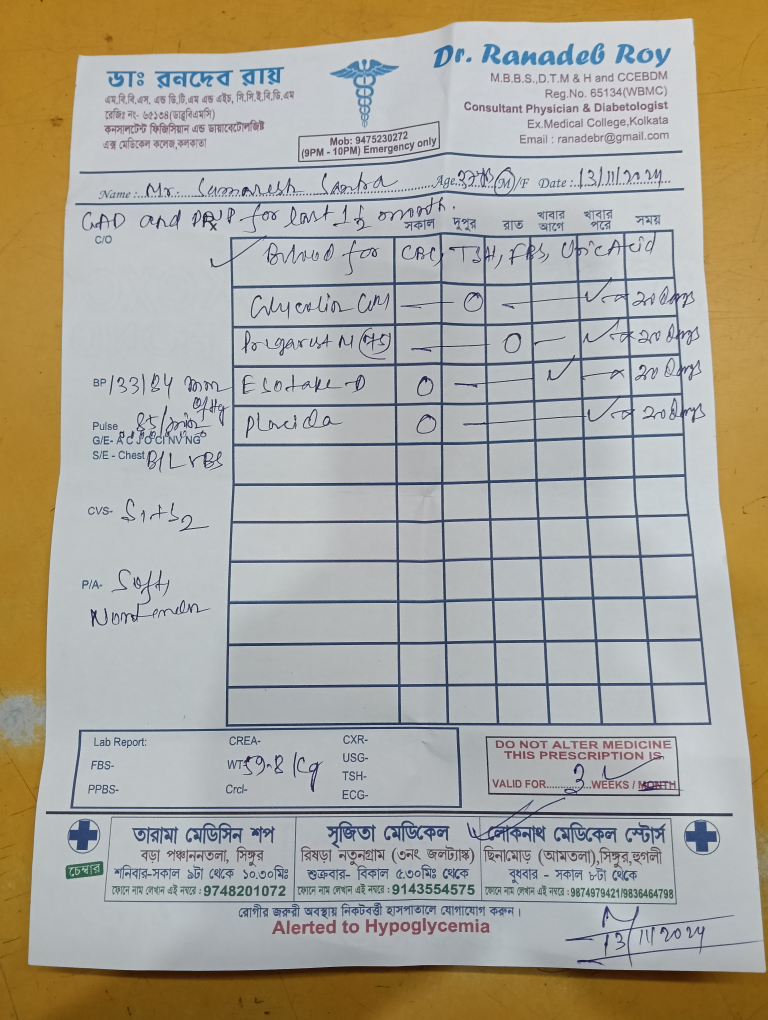 ডাঃ রনদেব রায়
এম.বি.বি.এস, এন্ড ডি.টি.এম এন্ড এইচ, সি.সি.ই.বি.ডি.এম
রেজিঃ নং- ৬৫১৩৪(ডাব্লুবিএমসি)
কনসালটেন্ট ফিজিসিয়ান এন্ড ডায়াবেটোলজিষ্ট
এক্স মেডিকেল কলেজ,কলকাতা
Mob: 9475230272
(9PM - 10PM) Emergency only
Dr. Ranadeb Roy
M.B.B.S.,D.T.M & H and CCEBDM
Reg.No. 65134(WBMC)
Consultant Physician & Diabetologist
Ex.Medical College,Kolkata
Email : ranadebr@gmail.com
Name : Mr. Samaresh Santra Age M/F Date : 13/11/2024
GAD and for last 1½ month.
C/O
সকাল দুপুর রাত খাবার আগে খাবার পরে সময়
Blood for CBC, TSH, FBS, Uric Acid
20 Days
20 Days
BP 133/84 mm of Hg
Esotake-D 20 Days
Pulse 85/min
Placida 20 Days
G/E- A C J O Cl NV NG
S/E - Chest B/L VBS
CVS- S1+S2
P/A- Soft,
Nontender
Lab Report: CREA- CXR-
FBS- WT- 59.8 Kg USG-
TSH-
PPBS- Crcl- ECG-
DO NOT ALTER MEDICINE
THIS PRESCRIPTION IS
VALID FOR 3 WEEKS / MONTH
চেম্বার
তারামা মেডিসিন শপ
বড়া পঞ্চাননতলা, সিঙ্গুর
শনিবার-সকাল ৯টা থেকে ১০.৩০মিঃ
ফোনে নাম লেখান এই নম্বরে : 9748201072
সৃজিতা মেডিকেল
রিষড়া নতুনগ্রাম (৩নং জলট্যাঙ্ক)
শুক্রবার- বিকাল ৫.৩০মিঃ থেকে
ফোনে নাম লেখান এই নম্বরে : 9143554575
লোকনাথ মেডিকেল স্টোর্স
ছিনামোড় (আমতলা),সিঙ্গুর,হুগলী
বুধবার - সকাল ৮টা থেকে
ফোনে নাম লেখান এই নম্বরে : 9874979421/9836464798
রোগীর জরুরী অবস্থায় নিকটবর্ত্তী হাসপাতালে যোগাযোগ করুন।
Alerted to Hypoglycemia
13/11/2024